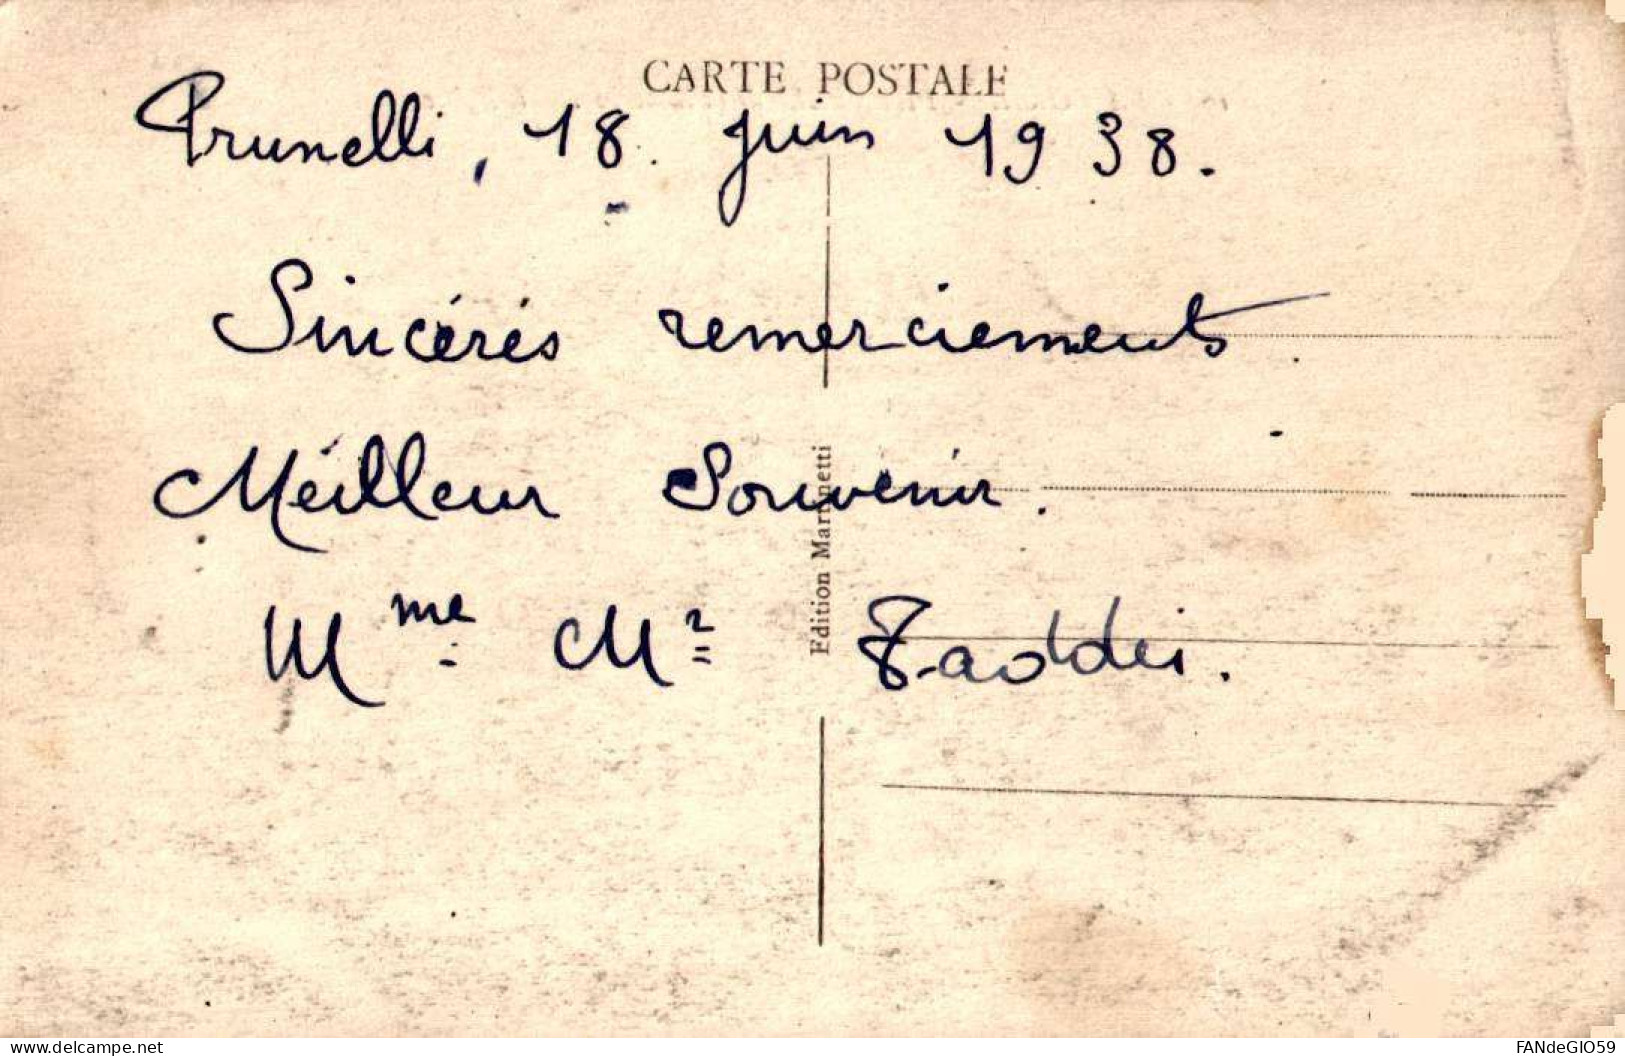 CARTE POSTALE
Prunelli, 18 juin 1938.
Sincérés remerciements.
Méilleur Souvenir.
Mme. Mr Taddei.
Edition Martinetti
www.delcampe.net
FANdeGIO59